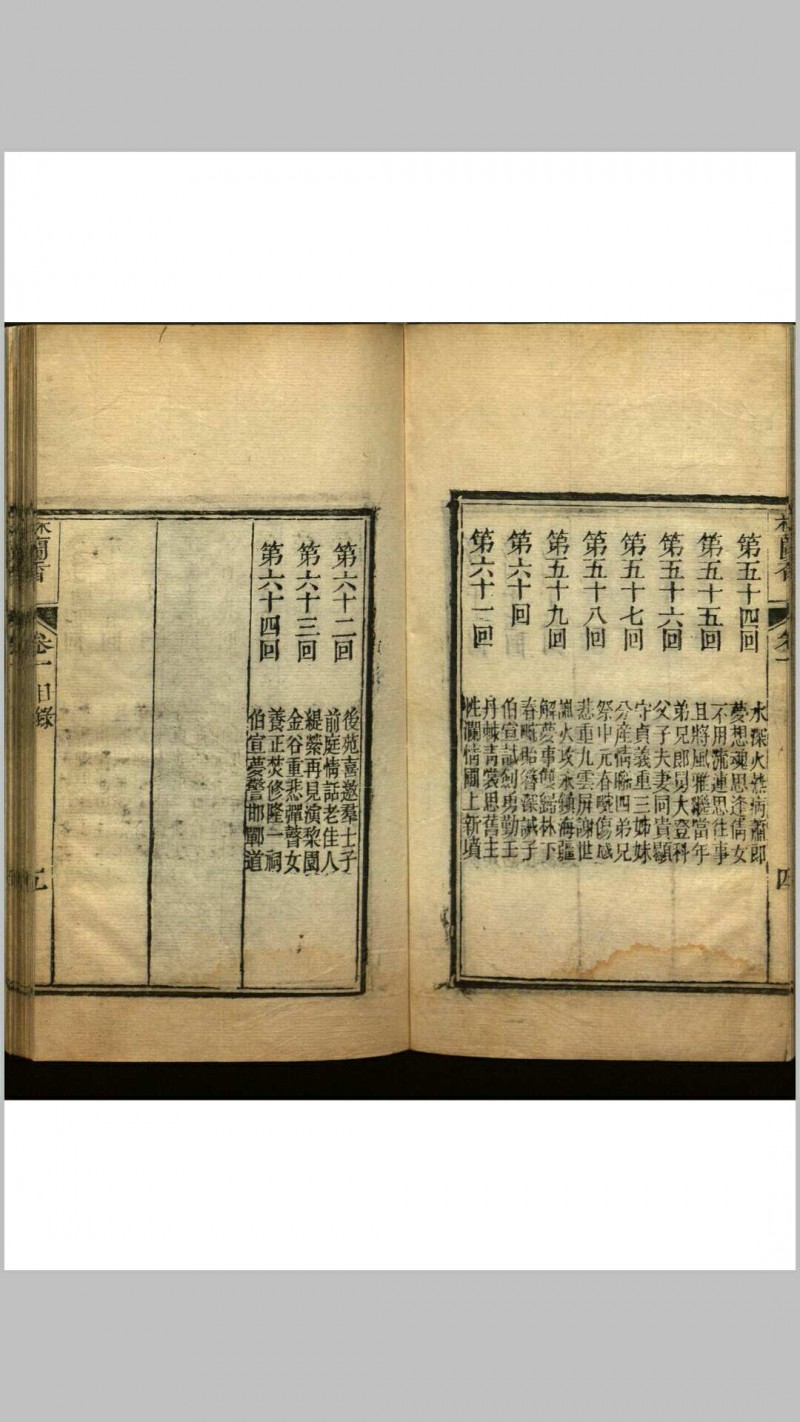 第五十四回
水深火㷫病蕭郎
夢想魂思逢倩女
第五十五回
不用流連思往事
且將風雅繼當年
第五十六回
弟兄郎舅大登科
父子夫妻同貴顯
第五十七回
守貞義重三姊妹
分産情聯四弟兄
第五十八回
祭中元春畹傷感
悲重九雲屏謝世
第五十九回
溫火攻永鎮海疆
解夢事雙歸林下
第六十回
春畹貽簪深誡子
伯宣誌劍勇勤王
第六十一回
丹棘青裳思舊主
性瀾情圃上新墳
第六十二回
後苑喜邀羣士子
前庭情話老佳人
第六十三回
緹縈再見演黎園
金谷重悲彈瞽女
第六十四回
養正焚修隆一祠
伯宣夢警邯鄲道
卷一目錄